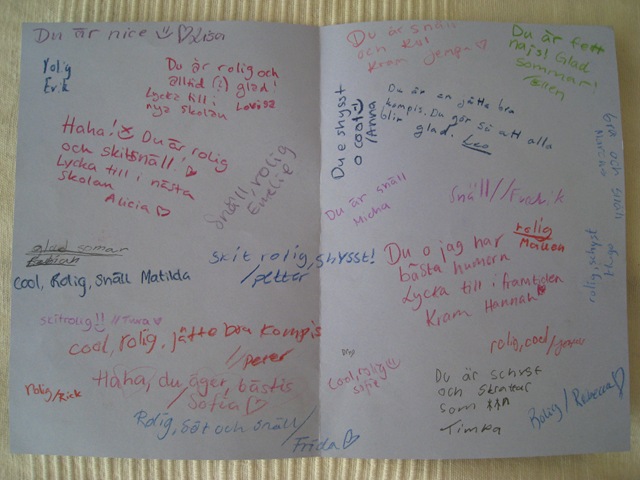 Du är nice ☺ ♡ Lisa
Rolig
Erik
Du är rolig och
alltid (?) glad!
Lycka till i
nya skolan Lovisa
Haha! Du är rolig
och skitsnäll!
Lycka till i nästa
skolan
Alicia ♡
Snäll, rolig
Emelie
glad somar
Fabian
Cool, Rolig, Snäll Matilda
skit rolig, shysst!
/petter
skitrolig!! //Tuva ♡
cool, rolig, jätte bra kompis
//peter
Haha, du äger, bästis
/Sofia ♡
rolig/Rick
Rolig, söt och snäll/
Frida ♡
Du är snäll
och kol
Kram Jenny ♡
Du är fett
najs! Glad
sommar!
Ellen
Du e shysst
o cool ☺
/Anna
Du är en jätte bra
kompis. Du gör så att alla
blir glad. Leo
bra och snäll
Du är snäll
Micha
Snäll//Fredrik
rolig
Malion
Du o jag har
bästa humorn
Lycka till i framtiden
Kram Hannah
rolig, schyst
Hugo
rolig, cool/
cool, rolig ☺
Sofie
Du är schyst
och skrattar
som
Timka
Rolig/Rebecca ♡